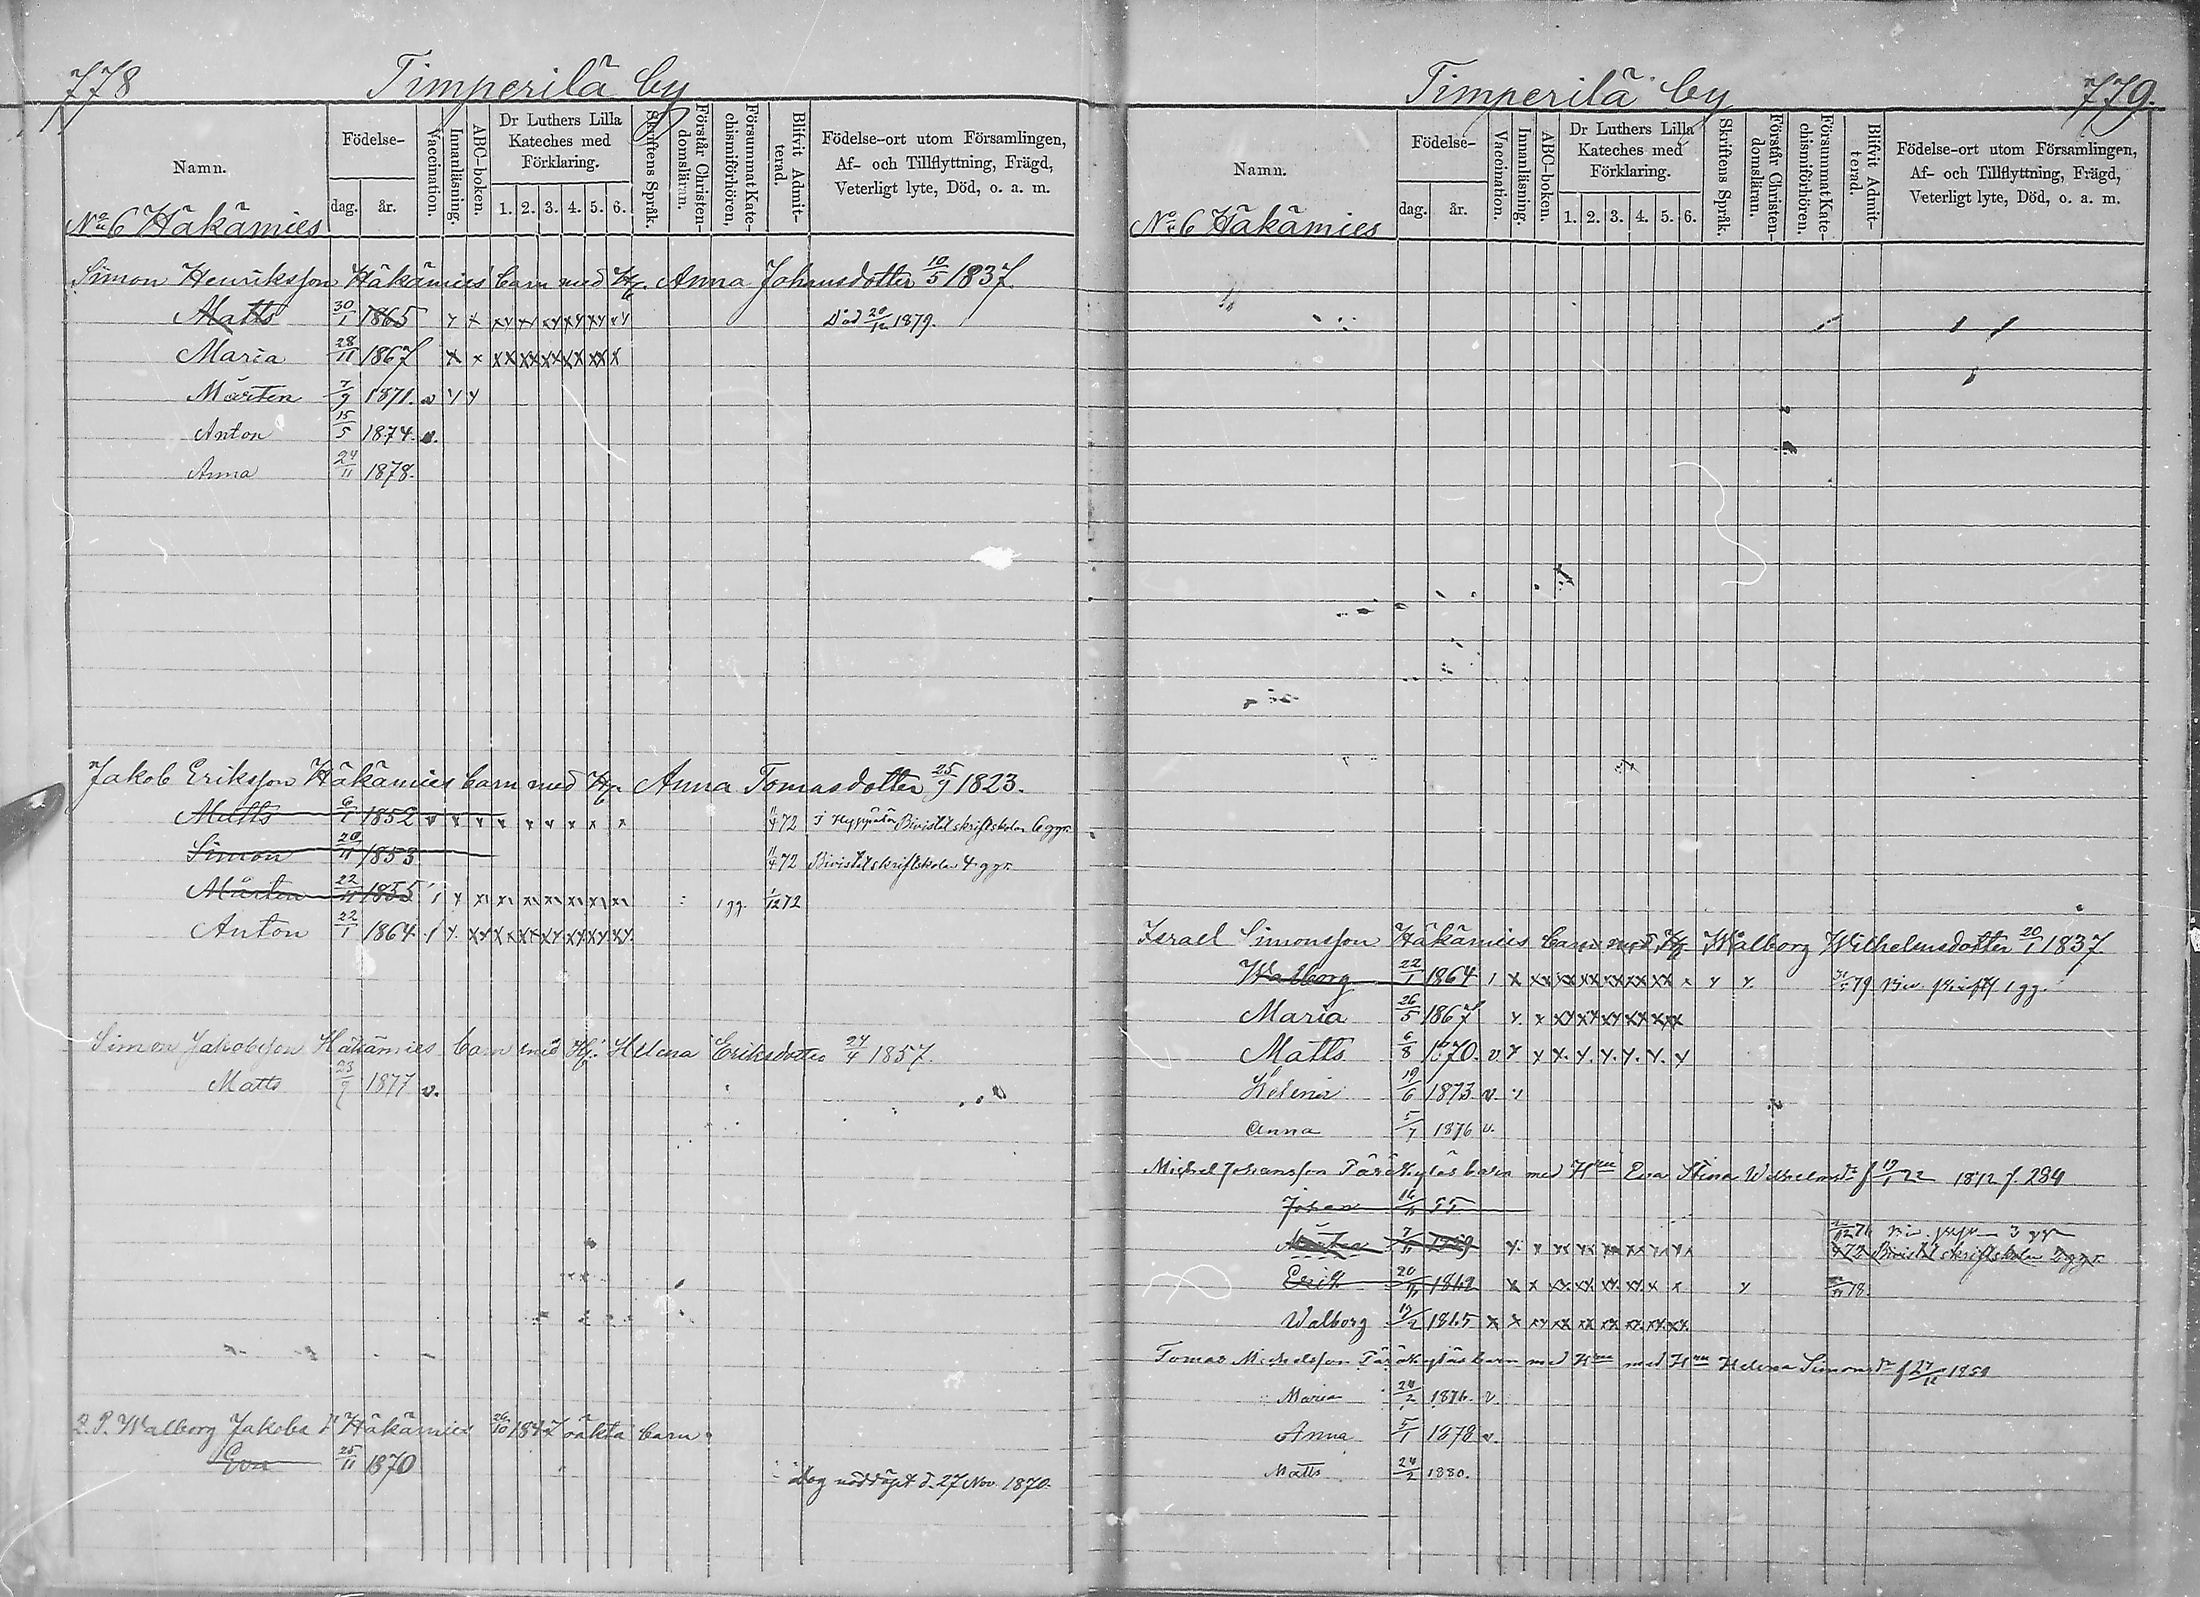 778
Timperilä by
Namn.
Födelse-
dag.
år.
Vaccination.
Innanläsning.
ABC-boken.
Dr Luthers Lilla Kateches med Förklaring.
1. 2. 3. 4. 5. 6.
Skriftens Språk.
Förstår Christendomsläran.
Försummat Katechismiförhören,
Blifvit Admitterad.
Födelse-ort utom Församlingen,
Af- och Tillflyttning, Frägd,
Veterligt lyte, Död, o. a. m.
No 6 Häkämies
Simon Henriksson Häkämies barn med H. Anna Johansdotter 10/5 1837.
Matts 30/1 1865 Död 20/12 1879.
Maria 28/11 1867
Mårten 7/9 1871. v
Anton 15/5 1874. v.
Anna 24/11 1878.
Jakob Eriksson Häkämies barn med H. Anna Tomasdotter 25/9 1823.
Matts 6/1 1852 v 11/4 72 Bivistat skriftskolan 6 ggr.
Simon 20/11 1853 11/4 72 Bivistat skriftskolan 4 ggr.
Mårten 22/11 1855 1 gg. 1/12 72
Anton 22/1 1864
Simon Jakobsson Häkämies barn med H. Helena Eriksdotter 24/4 1857.
Matts 23/9 1877 v.
Walborg Jakobs Dr Häkämies 26/10 1847 oäkta barn
Eva 25/11 1870
Dog nöddöpt d. 27 Nov. 1870.
Timperilä by
779.
Namn.
Födelse-
dag.
år.
Vaccination.
Innanläsning.
ABC-boken.
Dr Luthers Lilla Kateches med Förklaring.
1. 2. 3. 4. 5. 6.
Skriftens Språk.
Förstår Christendomsläran.
Försummat Katechismiförhören.
Blifvit Admitterad.
Födelse-ort utom Församlingen,
Af- och Tillflyttning, Frägd,
Veterligt lyte, Död, o. a. m.
No 6 Häkämies
Israel Simonsson Häkämies barn med H. Walborg Wilhelmsdotter 20/1 1837.
Walborg 22/1 1864 79 1 gg.
Maria 26/5 1867
Matts 6/8 1870. v
Helena 19/6 1873. v.
Anna 5/7 1876 v.
Michel Johansson barn med Hru Eva Stina Wilhelmsdr
Johan 55
Mårten
72 Bivistat skriftskolan ggr.
Erik 1862 78.
Walborg 19/2 1865
Tomas Michelsson barn med Hru med Hru Helena Simonsdr
Maria 24/2 1876. v
Anna 5/1 1878 v.
Matts 24/2 1880.